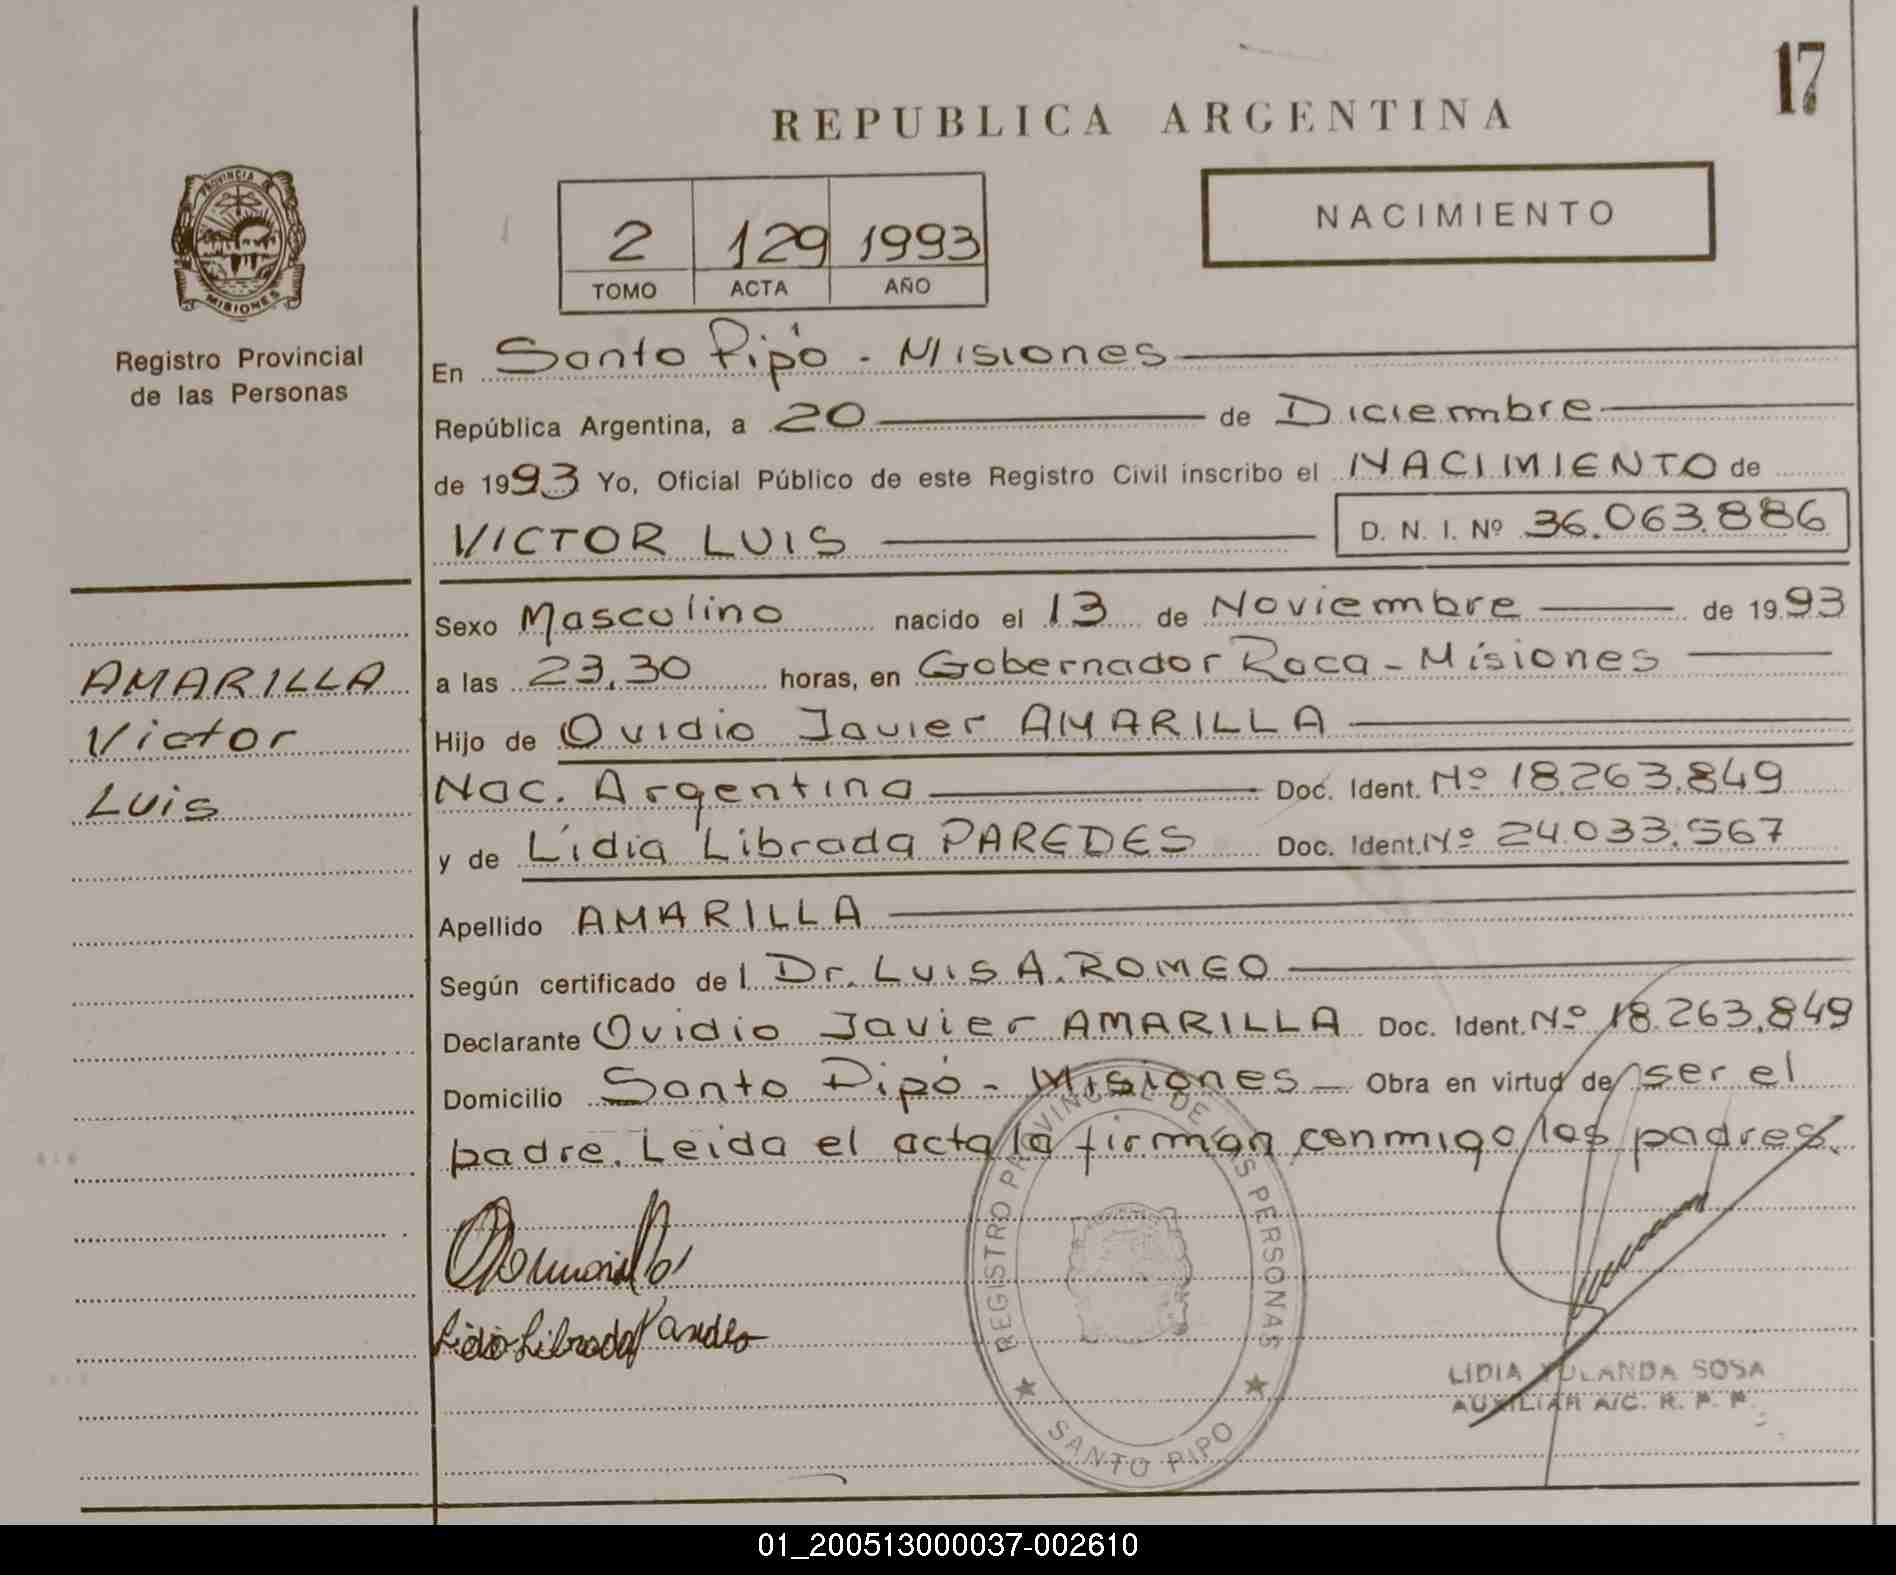 17
REPUBLICA ARGENTINA
PROVINCIA
MISIONES
Registro Provincial
de las Personas
NACIMIENTO
2 129 1993
TOMO ACTA AÑO
En Santo Pipó - Misiones
República Argentina, a 20 de Diciembre
de 1993 Yo, Oficial Público de este Registro Civil inscribo el NACIMIENTO de
VICTOR LUIS D. N. I. Nº 36.063.886
Sexo Masculino nacido el 13 de Noviembre de 1993
AMARILLA
Victor
Luis
a las 23,30 horas, en Gobernador Roca - Misiones
Hijo de Ovidio Javier AMARILLA
Nac. Argentina Doc. Ident. Nº 18.263.849
y de Lidia Librada PAREDES Doc. Ident. Nº 24.033.567
Apellido AMARILLA
Según certificado de l Dr. LUIS A. ROMEO
Declarante Ovidio Javier AMARILLA Doc. Ident. Nº 18.263.849
Domicilio Santo Pipó - Misiones - Obra en virtud de ser el
padre. Leida el acta la firman conmigo los padres.
Lidia Librada Paredes
REGISTRO PROVINCIAL DE LAS PERSONAS
SANTO PIPO
LIDIA YOLANDA SOSA
AUXILIAR A/C. R. P. P.
01_200513000037-002610